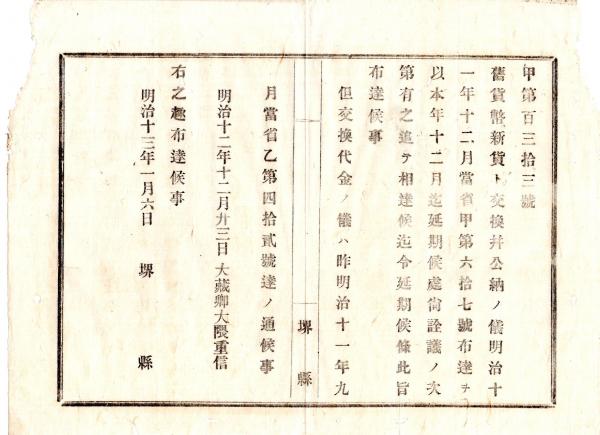 甲第百三拾三號
舊貨幣新貨ト交換并公納ノ儀明治十
一年十二月當省甲第六拾七號布達ヲ
以本年十二月迄延期候處尙詮議ノ次
第有之追テ相達候迄令延期候條此旨
布達候事
但交換代金ノ儀ハ昨明治十一年九
堺縣
月當省乙第四拾貳號達ノ通候事
明治十二年十二月廿三日 大藏卿大隈重信
右之趣布達候事
明治十三年一月六日 堺縣